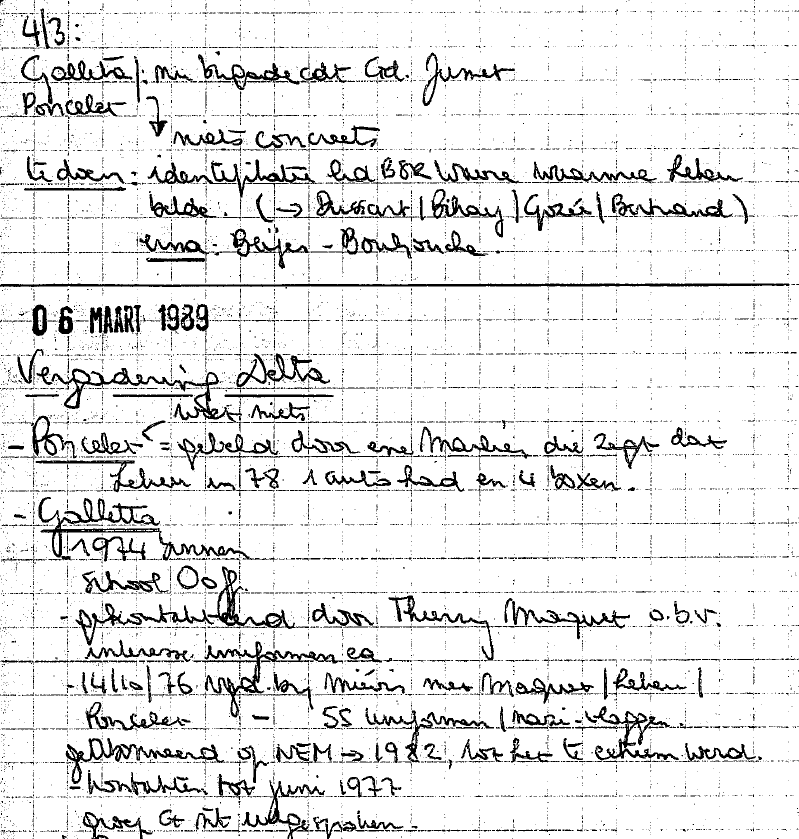 4/3:
Galletta/: nu brigadecdt Gd. Jumet
Poncelet
niets concreets
te doen: identifikatie lid BSR Wavre waarmee Lekeu
belde. (→ Dussart/Bihay/Gozée/Bertrand)
: Beijer - Bouhouche.
06 MAART 1989
Vergadering Delta
weet niets
- Poncelet = gebeld door ene Marlier, die zegt dat
Lekeu in 78 1 auto had en 4 boxen.
- Galletta
- 1974 binnen
school Ooff.
- gekontakteerd door Thierry Maquet o.b.v.
interesse uniformen ea.
- 14/10/76 vgd. bij Miévis met Maquet/Lekeu/
Poncelet - SS uniformen/nazi-vlaggen.
geabonneerd op NEM → 1982, tot het te extreem werd.
- kontakten tot juni 1977
groep G nt uitgesproken.